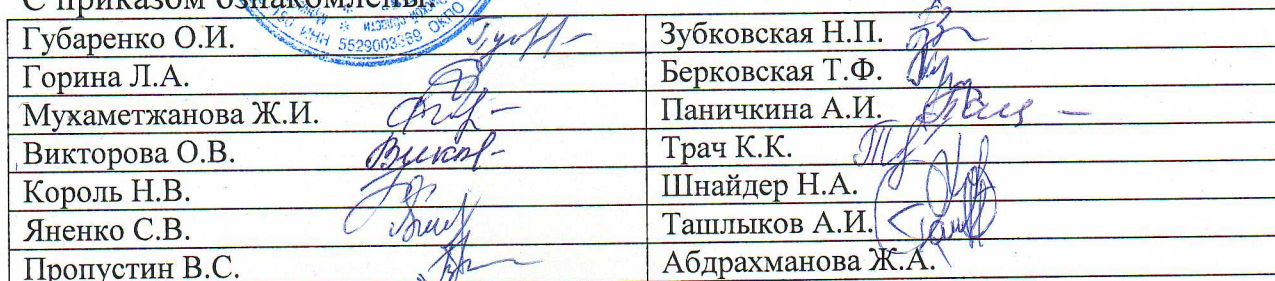 С приказом ознакомлены:
ИНН 5529003369 ОКПО
Губаренко О.И. Зубковская Н.П.
Горина Л.А. Берковская Т.Ф.
Мухаметжанова Ж.И. Паничкина А.И.
Викторова О.В. Трач К.К.
Король Н.В. Шнайдер Н.А.
Яненко С.В. Ташлыков А.И.
Пропустин В.С. Абдрахманова Ж.А.